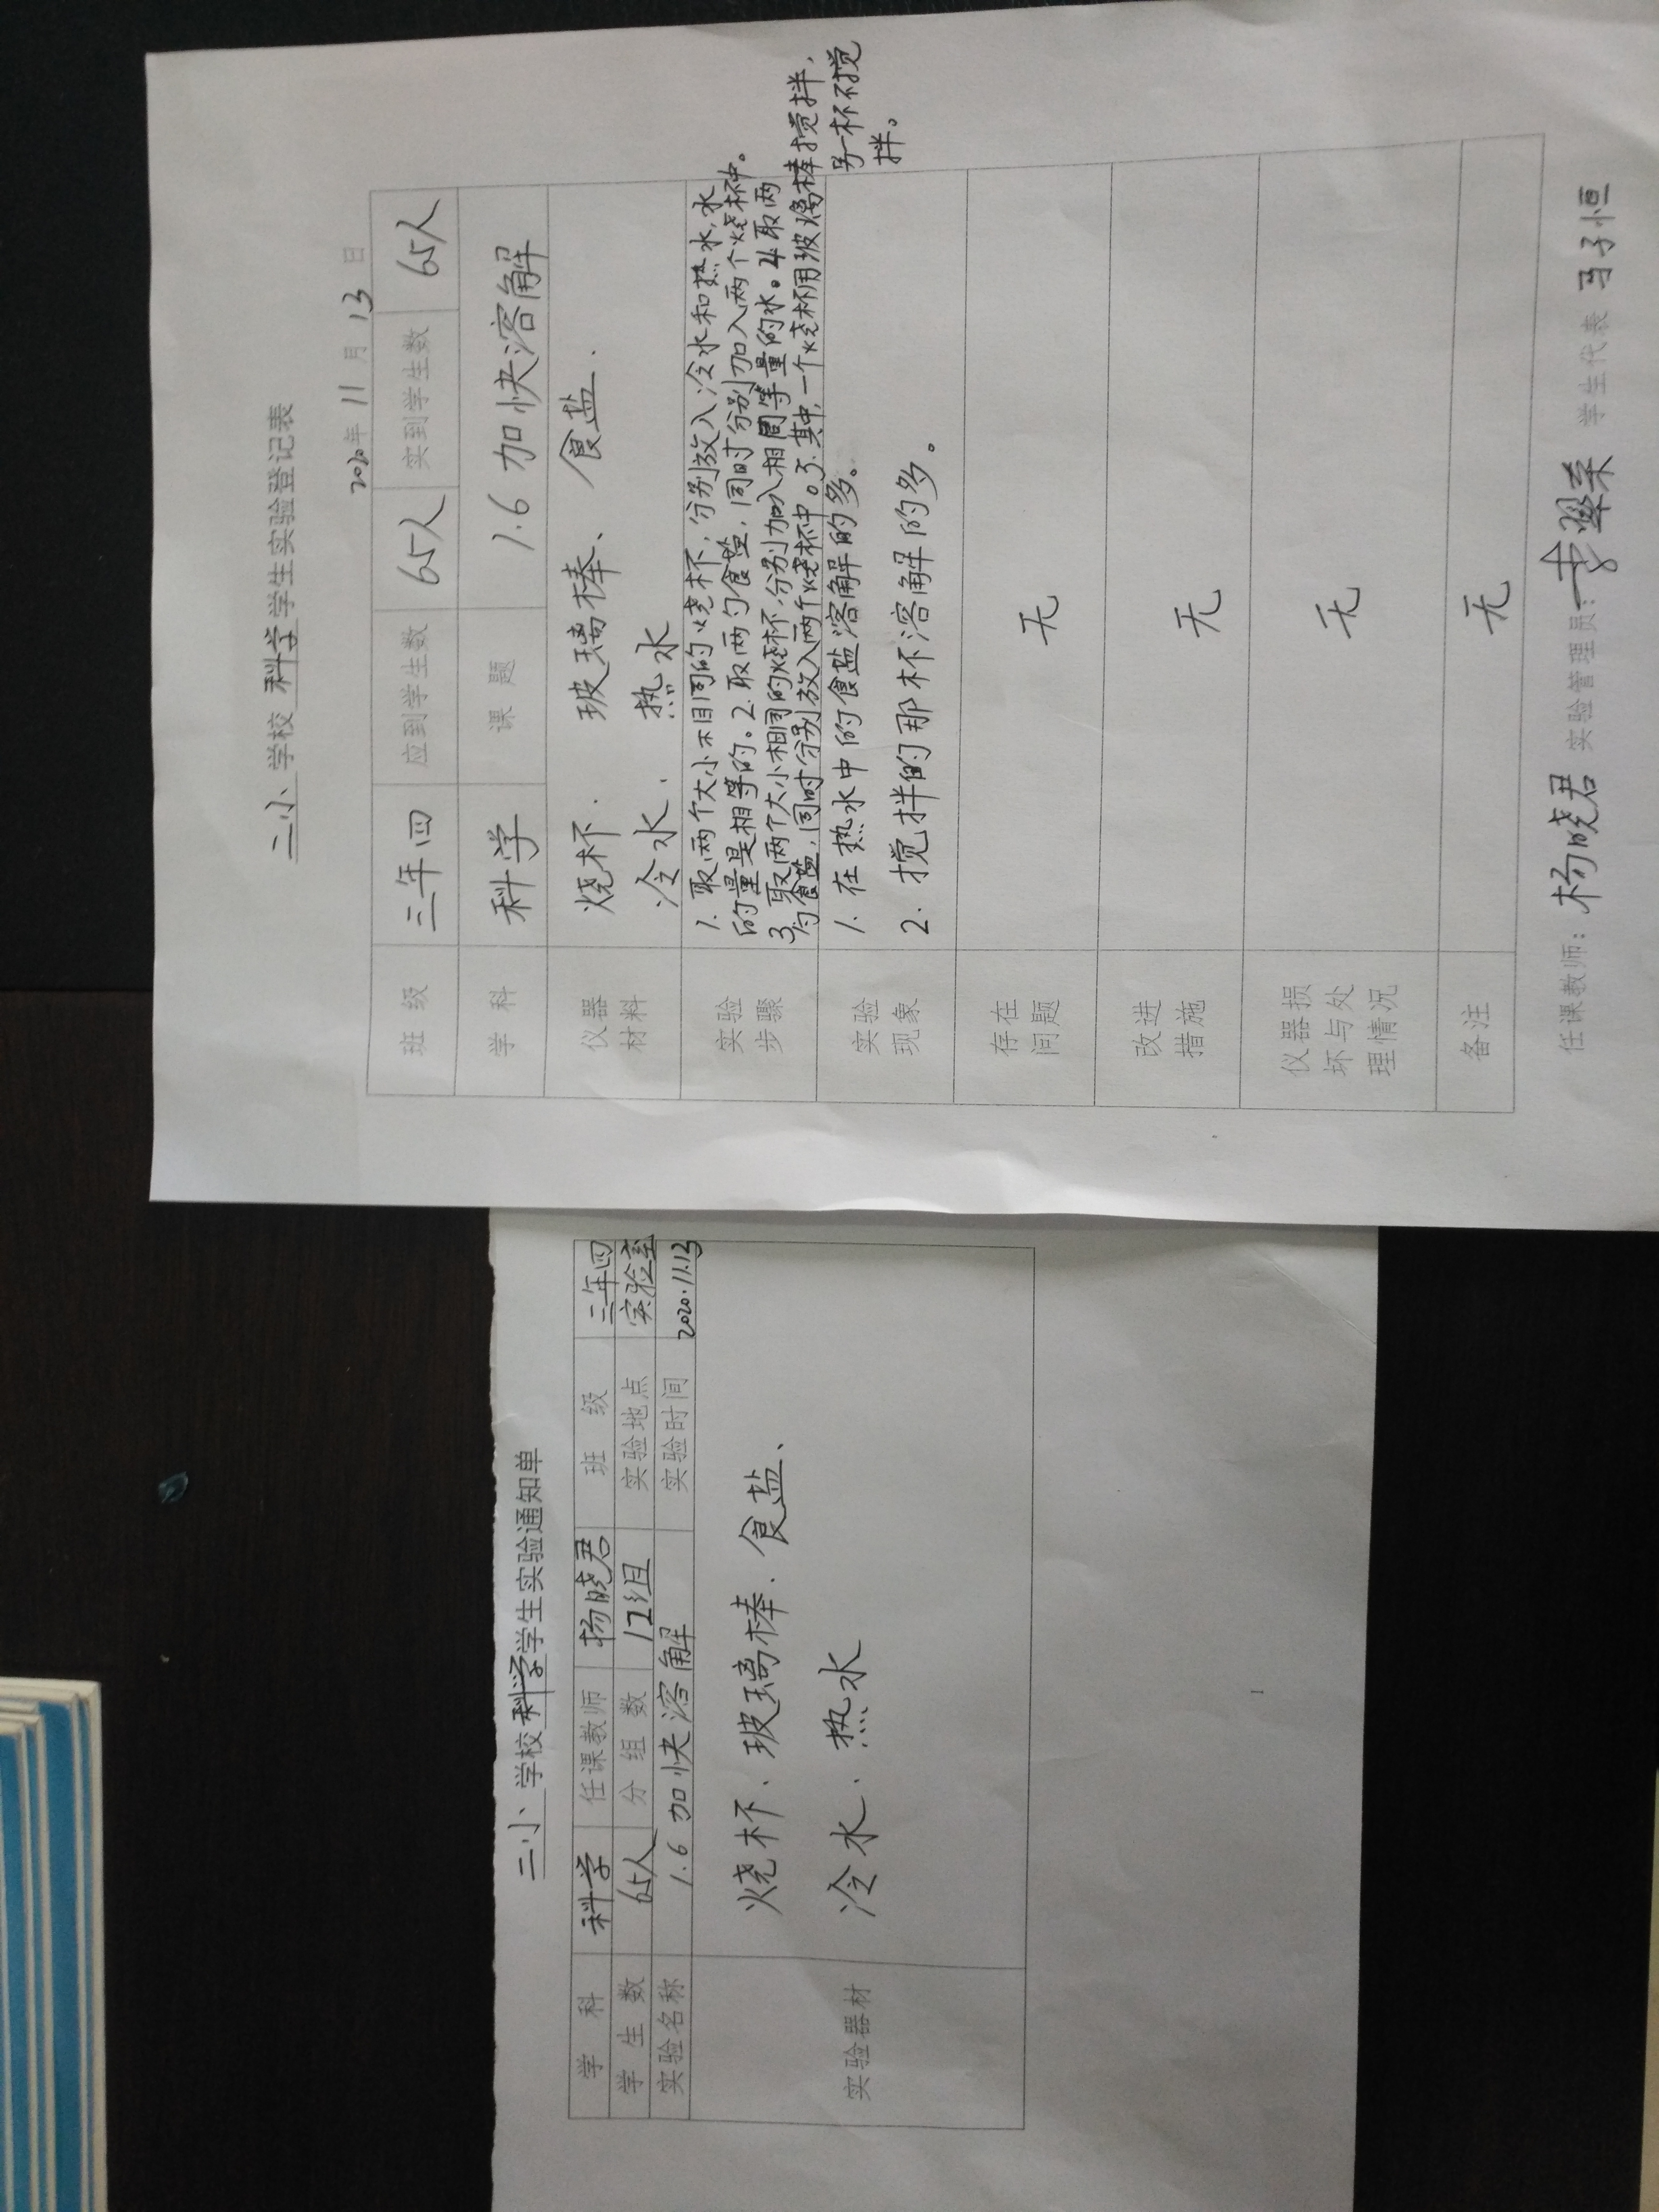 二小 学校 科学 学生实验登记表
2020年 11月 13日
班 级 三年四 应到学生数 65人 实到学生数 65人
学 科 科学 课 题 1.6 加快溶解
仪器材料 烧杯、 玻璃棒、 食盐、
冷水、 热水
实验步骤 1. 取两个大小相同的烧杯,分别放入冷水和热水,水
的量是相等的。2. 取两勺食盐,同时分别加入两个烧杯中。
3. 取两个大小相同的烧杯,分别加入相同等量的水。4. 取两
勺食盐,同时分别放入两个烧杯中。5. 其中,一个烧杯用玻璃棒搅拌,
另一杯不搅
拌。
实验现象 1. 在热水中的食盐溶解的多。
2. 搅拌的那杯溶解的多。
存在问题 无
改进措施 无
仪器损坏与处理情况 无
备注 无
任课教师: 杨晓君 实验管理员: 学生代表 马子恒
二小 学校 科学 学生实验通知单
学 科 科学 任课教师 杨晓君 班 级 三年四
学 生 数 65人 分 组 数 12组 实验地点 实验室
实验名称 1.6 加快溶解 实验时间 2020.11.13
实验器材 烧杯、玻璃棒、食盐、
冷水、热水